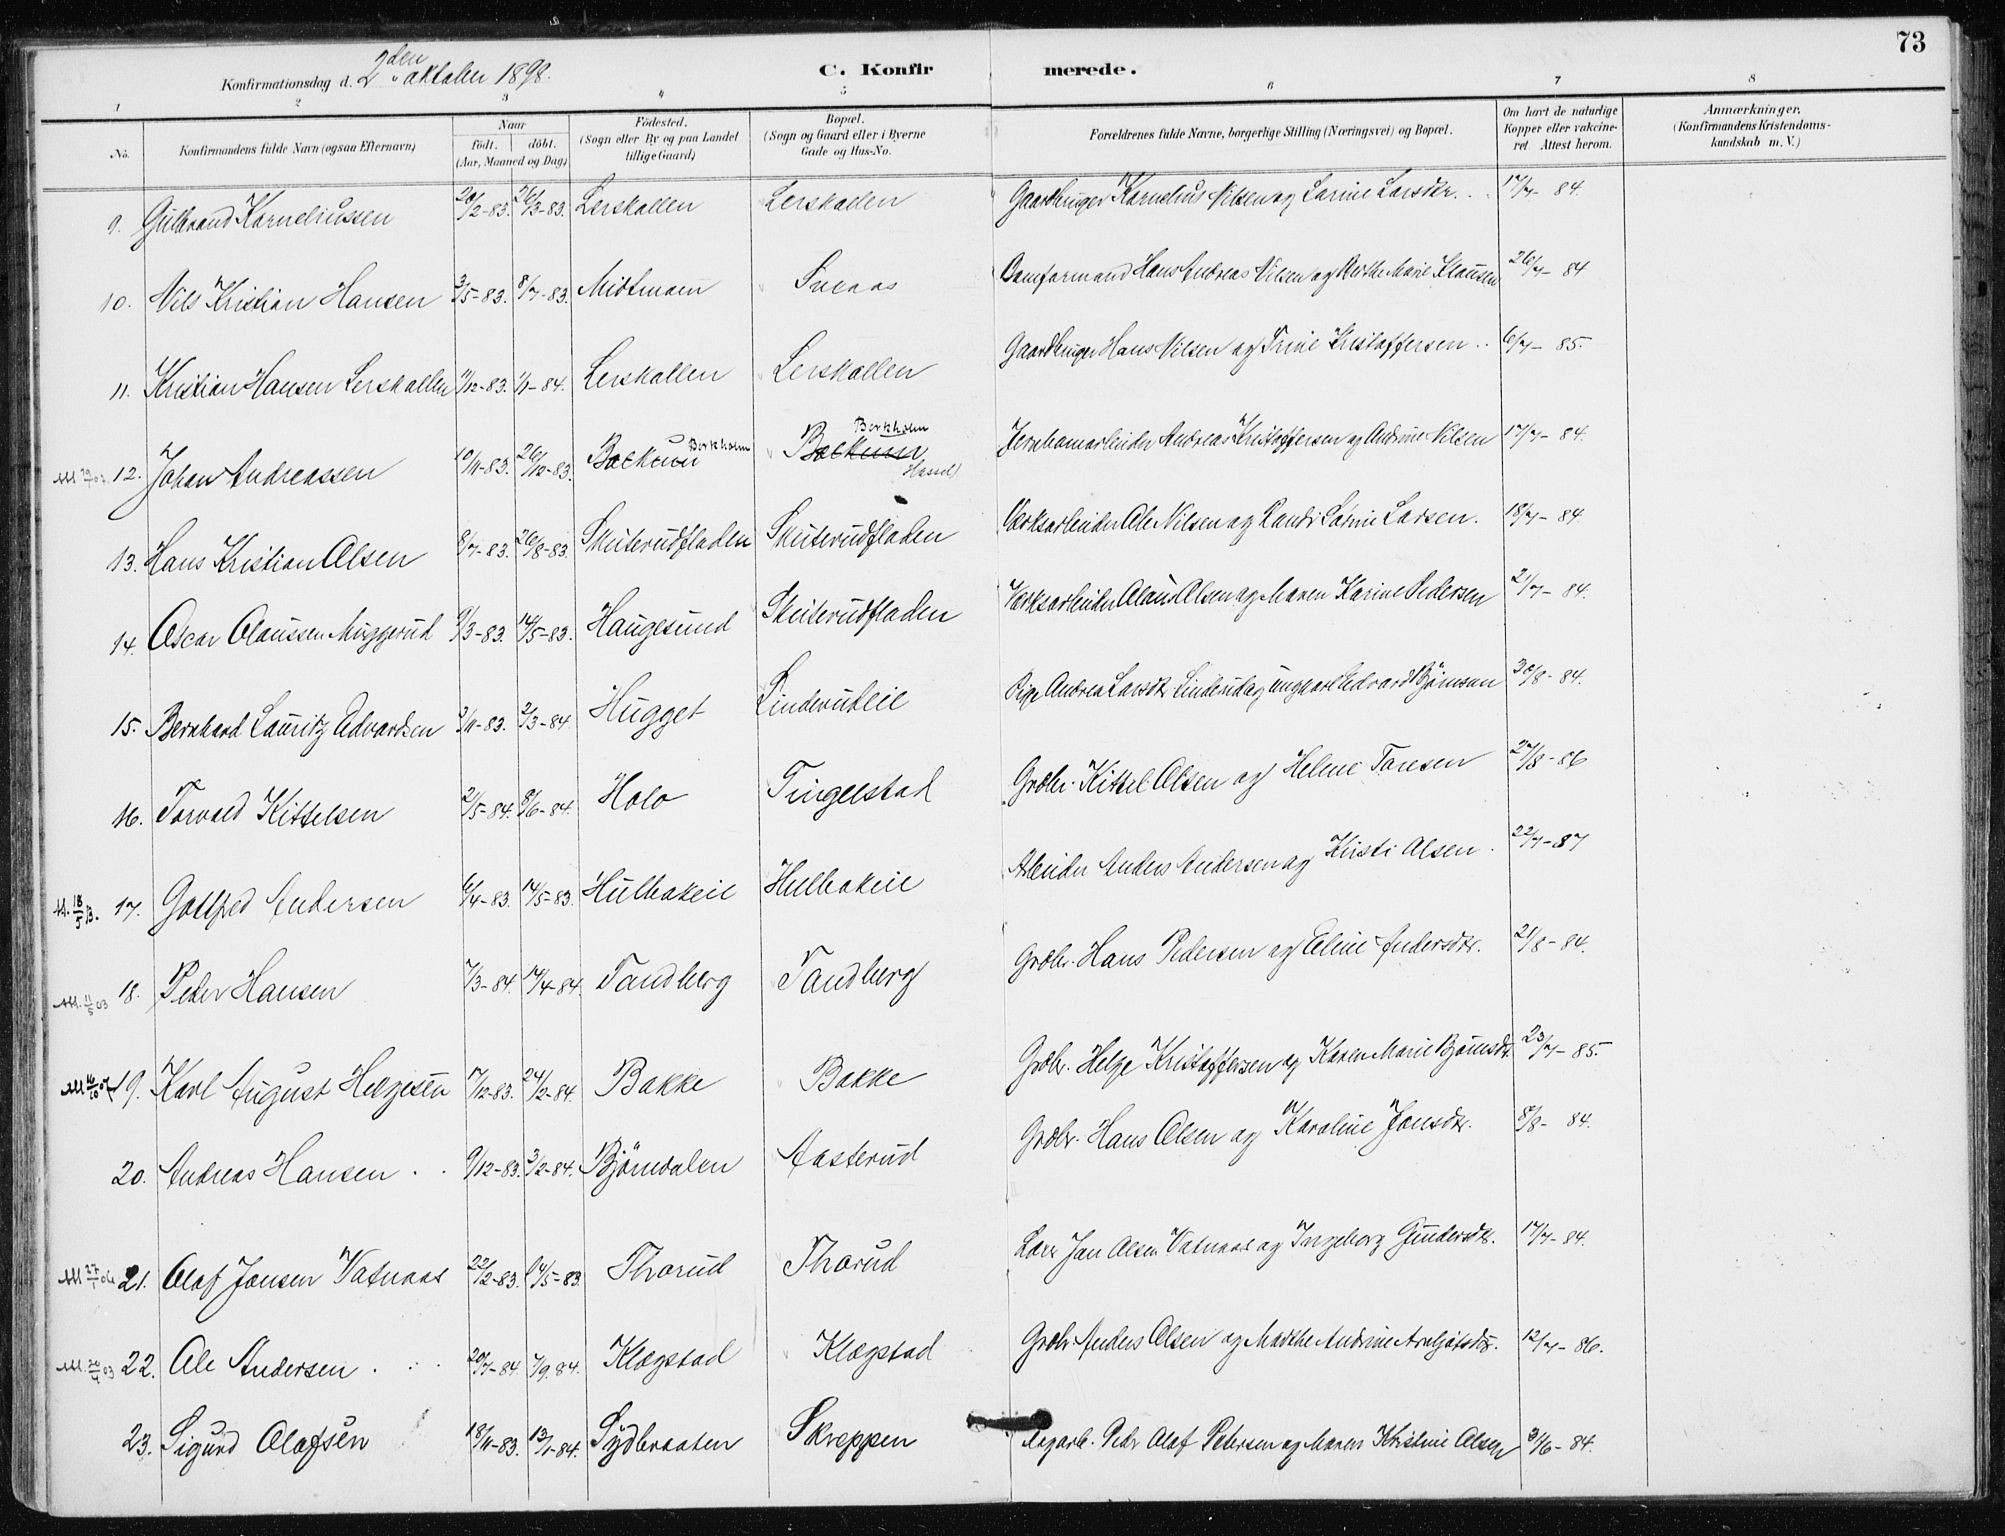 73
Konfirmationsdag d. 2den oktober 1898.
C. Konfirmerede.
1 2 3 4 5 6 7 8
No. Konfirmandens fulde Navn (ogsaa Efternavn) Naar födt. döbt. (Aar, Maaned og Dag) Födested. (Sogn eller By og paa Landet tillige Gaard) Bopæl. (Sogn og Gaard eller i Byerne Gade og Hus-No. Forældrenes fulde Navne, borgerlige Stilling (Næringsvei) og Bopæl. Om havt de naturlige Kopper eller vakcineret. Attest herom. Anmærkninger. (Konfirmandens Kristendomskundskab m. V.)
9. Gulbrand Korneliussen 20/2-83. 26/3-83. Lerskallen Lerskallen Gaardbruger Kornelius Nilsen og Larine Larsdtr. 17/7-84.
10. Nils Kristian Hansen 3/5-83. 8/7-83. Midtmoen Sneaas Damformand Hans Andreas Nilsen og Berthe Marie Klausen 26/7-84
11. Kristian Hansen Lerskallen /12-83. 1/1-84. Lerskallen Lerskallen Gaardbruger Hans Nilsen og Trine Kristoffersen 6/7-85.
12. Johan Andreassen 10/11-83. 26/12-83. Borkholm Borkholm Hassel Jernbanearbeider Andreas Kristoffersen og Andrine Nilsen 17/7-84.
13. Hans Kristian Olsen 8/7-83. 26/8-83. Skuterudfladen Skuterudfladen Værksarbeider Ole Nilsen og Randi Lovine Larsen. 18/7-84.
14. Oscar Olaussen Muggerud 9/3-83. 14/5-83. Haugesund Skuterudfladen Værksarbeider Olaus Olsen og Maren Karine Pedersen 21/7-84.
15. Bernhard Lauritz Edvardsen 3/11-83. 2/3-84. Hugget Linderudeie Pige Andrea Larsdtr. Linderud og ungkarl Edvard Björnsen 30/8-84.
16. Torvald Kittelsen 2/5-84. 8/6-84. Holo Tingelstad Grdbr. Kittel Olsen og Helene Toresen 27/8-86
M. 18/5 13. 17. Gotfred Andersen 6/4-83. 14/5-83. Hulbakeie Hulbakeie Arbeider Anders Andersen og Kirsti Olsen. 22/7-87
M. 11/5 03 18. Peder Hansen 7/3-84. 14/4-84. Tandberg Tandberg Grdbr. Hans Pedersen og Eline Andersdtr. 21/8-84.
19. Karl August Helgesen 17/12-83. 24/2-84. Bakke Bakke Grdbr. Helge Kristoffersen og Karen Marie Björnsdtr. 23/7-85.
20. Andreas Hansen 9/12-83. 3/2-84. Björndalen Aasterud Grdbr. Hans Olsen og Karoline Jonsdtr. 8/8-84.
M 27/1 06 21. Olaf Jonsen Vatnaas 22/2-83. 14/5-83. Thorud Thorud Lærer Jon Olsen Vatnaas og Ingeborg Gundersdtr. 17/7-84.
22. Ole Andersen 20/7-84. 7/9.84. Klægstad Klægstad Grdbr. Anders Olsen og Marthe Andrine Arnljotsdtr. 12/7-86.
23. Sigurd Olafsen 18/11-83. 13/1-84. Sydbraaten Skreppen Peder Olaf Petersen og Maren Kristine Olsen 3/6-84.